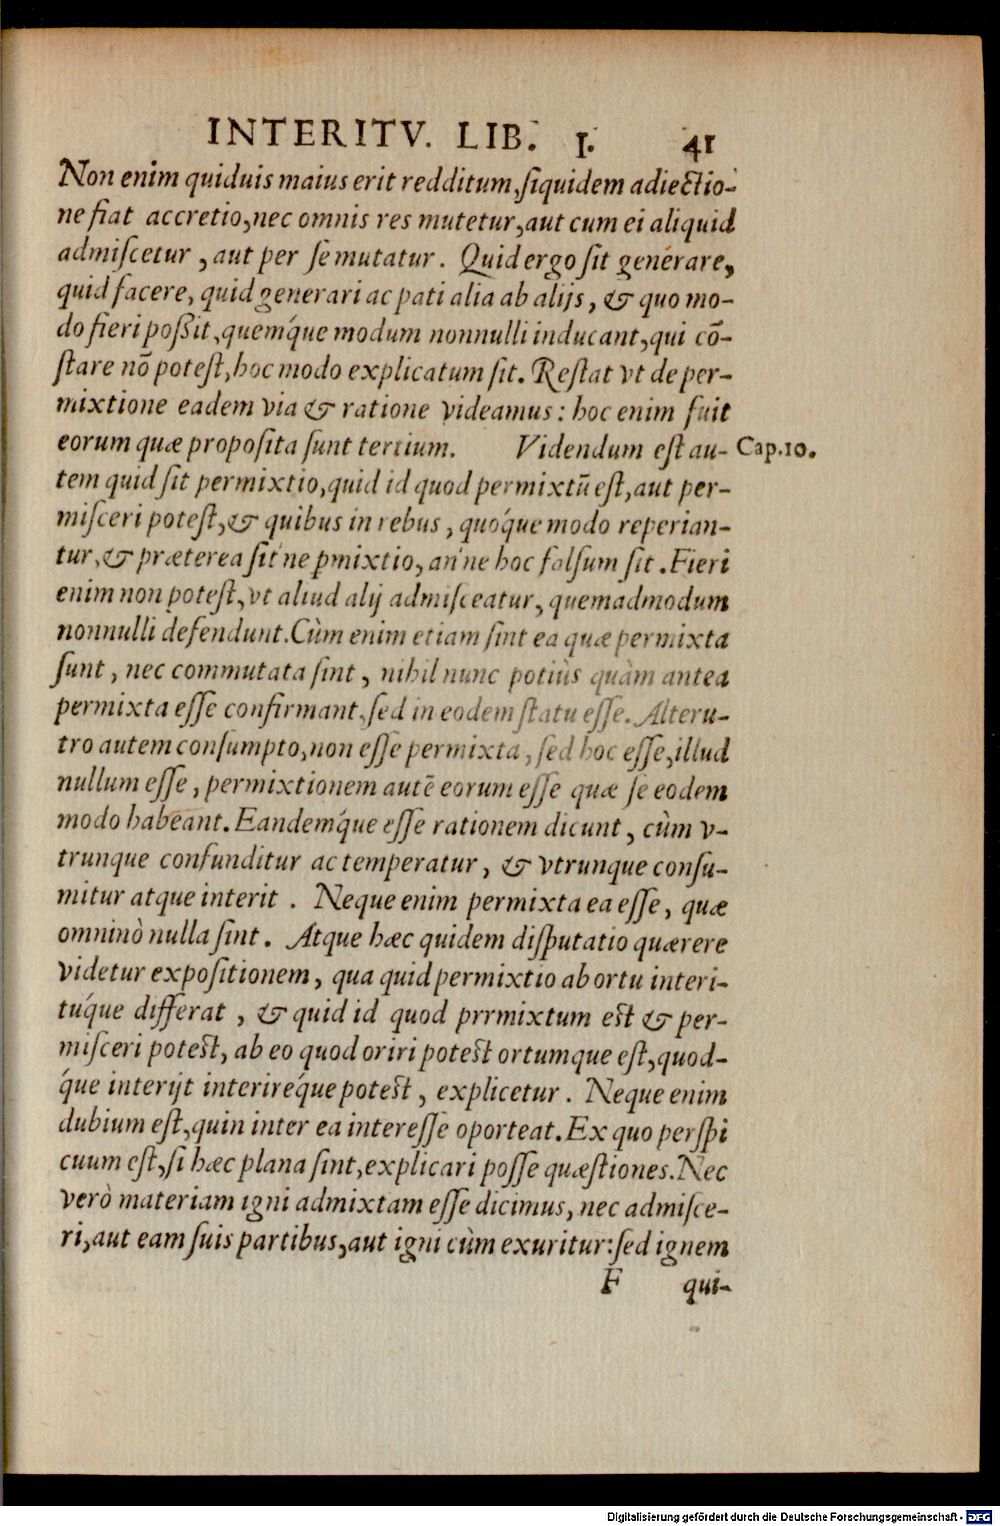 INTERITV. LIB. I. 41
Non enim quiduis maius erit redditum, siquidem adiectio-
ne fiat accretio, nec omnis res mutetur, aut cum ei aliquid
admiscetur, aut per se mutatur. Quid ergo sit generare,
quid facere, quid generari ac pati alia ab alijs, & quo mo-
do fieri poßit, quemq́ue modum nonnulli inducant, qui cō-
stare nō potest, hoc modo explicatum sit. Restat vt de per-
mixtione eadem via & ratione videamus: hoc enim fuit
eorum quæ proposita sunt tertium. Videndum est au- Cap.10.
tem quid sit permixtio, quid id quod permixtū est, aut per-
misceri potest, & quibus in rebus, quóque modo reperian-
tur, & præterea sit'ne ꝑmixtio, an'ne hoc falsum sit. Fieri
enim non potest, vt aliud alij admisceatur, quemadmodum
nonnulli defendunt. Cùm enim etiam sint ea quæ permixta
sunt, nec commutata sint, nihil nunc potiùs quàm antea
permixta esse confirmant, sed in eodem statu esse. Alteru-
tro autem consumpto, non esse permixta, sed hoc esse, illud
nullum esse, permixtionem autē eorum esse quæ se eodem
modo habeant. Eandemq́ue esse rationem dicunt, cùm v-
trunque confunditur ac temperatur, & vtrunque consu-
mitur atque interit. Neque enim permixta ea esse, quæ
omninò nulla sint. Atque hæc quidem disputatio quærere
videtur expositionem, qua quid permixtio ab ortu interi-
túque differat, & quid id quod prrmixtum est & per-
misceri potest, ab eo quod oriri potest ortumque est, quod-
q́ue interijt interireq́ue potest, explicetur. Neque enim
dubium est, quin inter ea interesse oporteat. Ex quo perspi
cuum est, si hæc plana sint, explicari posse quæstiones. Nec
verò materiam igni admixtam esse dicimus, nec admisce-
ri, aut eam suis partibus, aut igni cùm exuritur: sed ignem
F qui-
Digitalisierung gefördert durch die Deutsche Forschungsgemeinschaft - DFG